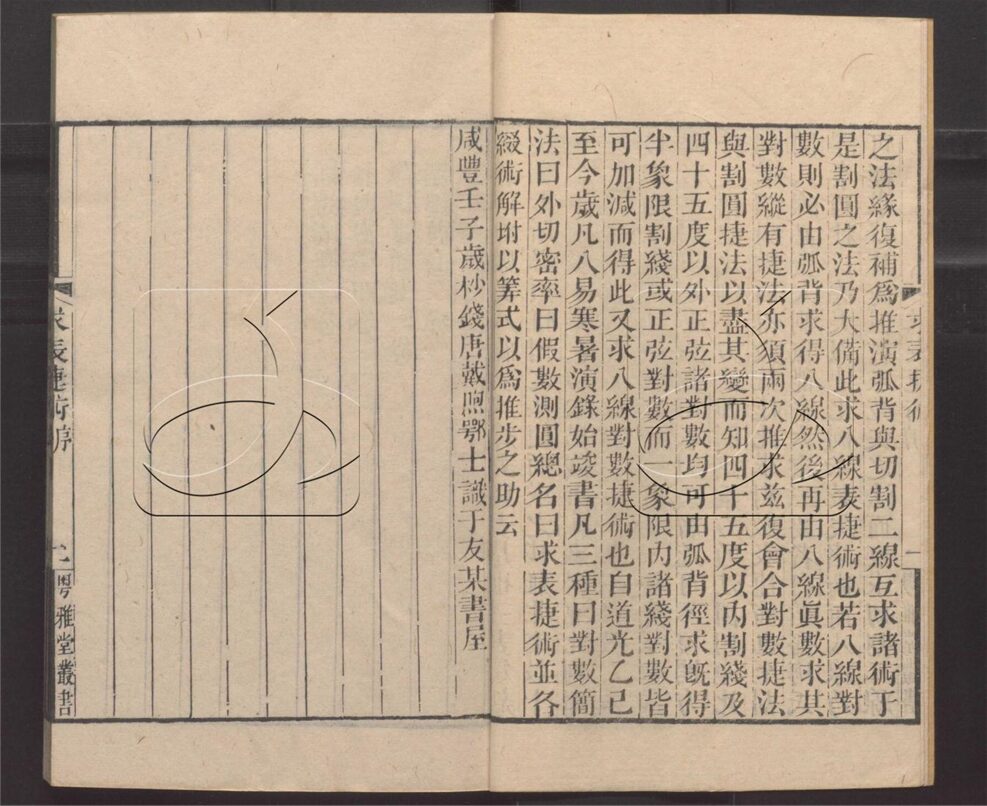 之法緣復補爲推演弧背與切割二線互求諸術于
是割圓之法乃大備此求八線表捷術也若八線對
數則必由弧背求得八線然後再由八線眞數求其
對數縱有捷法亦須兩次推求茲復會合對數捷法
與割圓捷法以盡其變而知四十五度以內割綫及
四十五度以外正弦諸對數均可由弧背徑求旣得
半象限割綫或正弦對數而一象限內諸綫對數皆
可加減而得此又求八線對數捷術也自道光乙巳
至今歲凡八易寒暑演錄始竣書凡三種曰對數簡
法曰外切密率曰假數測圓總名曰求表捷術並各
綴術解坿以筭式以爲推步之助云
咸豐壬子歲杪錢唐戴煦鄂士識于友某書屋
求表捷術序
粵雅堂叢書